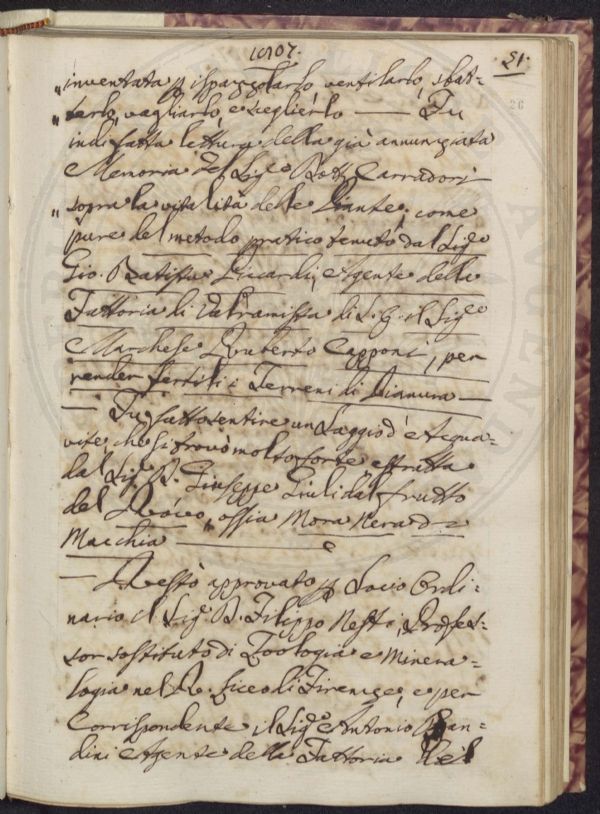 1807.
51.
26
„ inventata p ispazzolarlo ventilarlo, sbat=
„ terlo, vagliarlo, e sceglierlo — Fu
indi fatta lettura della già annunziata
Memoria del Sig.e Dott. Carradori
„ sopra la vitalità delle Piante, come
pure del metodo pratico tenuto dal Sig.e
Gio. Batista Licardi, Agente della
Fattoria di Valtramista di S. E. il Sig.e
Marchese Ruberto Capponi, per
render fertili i Terreni di Pianura —
— Fu fatto sentire un Saggio d'Acqua=
vite che si trovò molto forte estratta
dal Sig. D. Giuseppe Giuli dal frutto
del Rovo, ossia Mora Nera di
Macchia —
— Restò approvato p Socio Ordi=
nario il Sig. D. Filippo Nesti, Profes=
sor sostituto di Zoologia e Minera=
logia nel R. Liceo di Firenze, e per
Corrispondente il Sig.e Antonio
dini Agente della Fattoria del